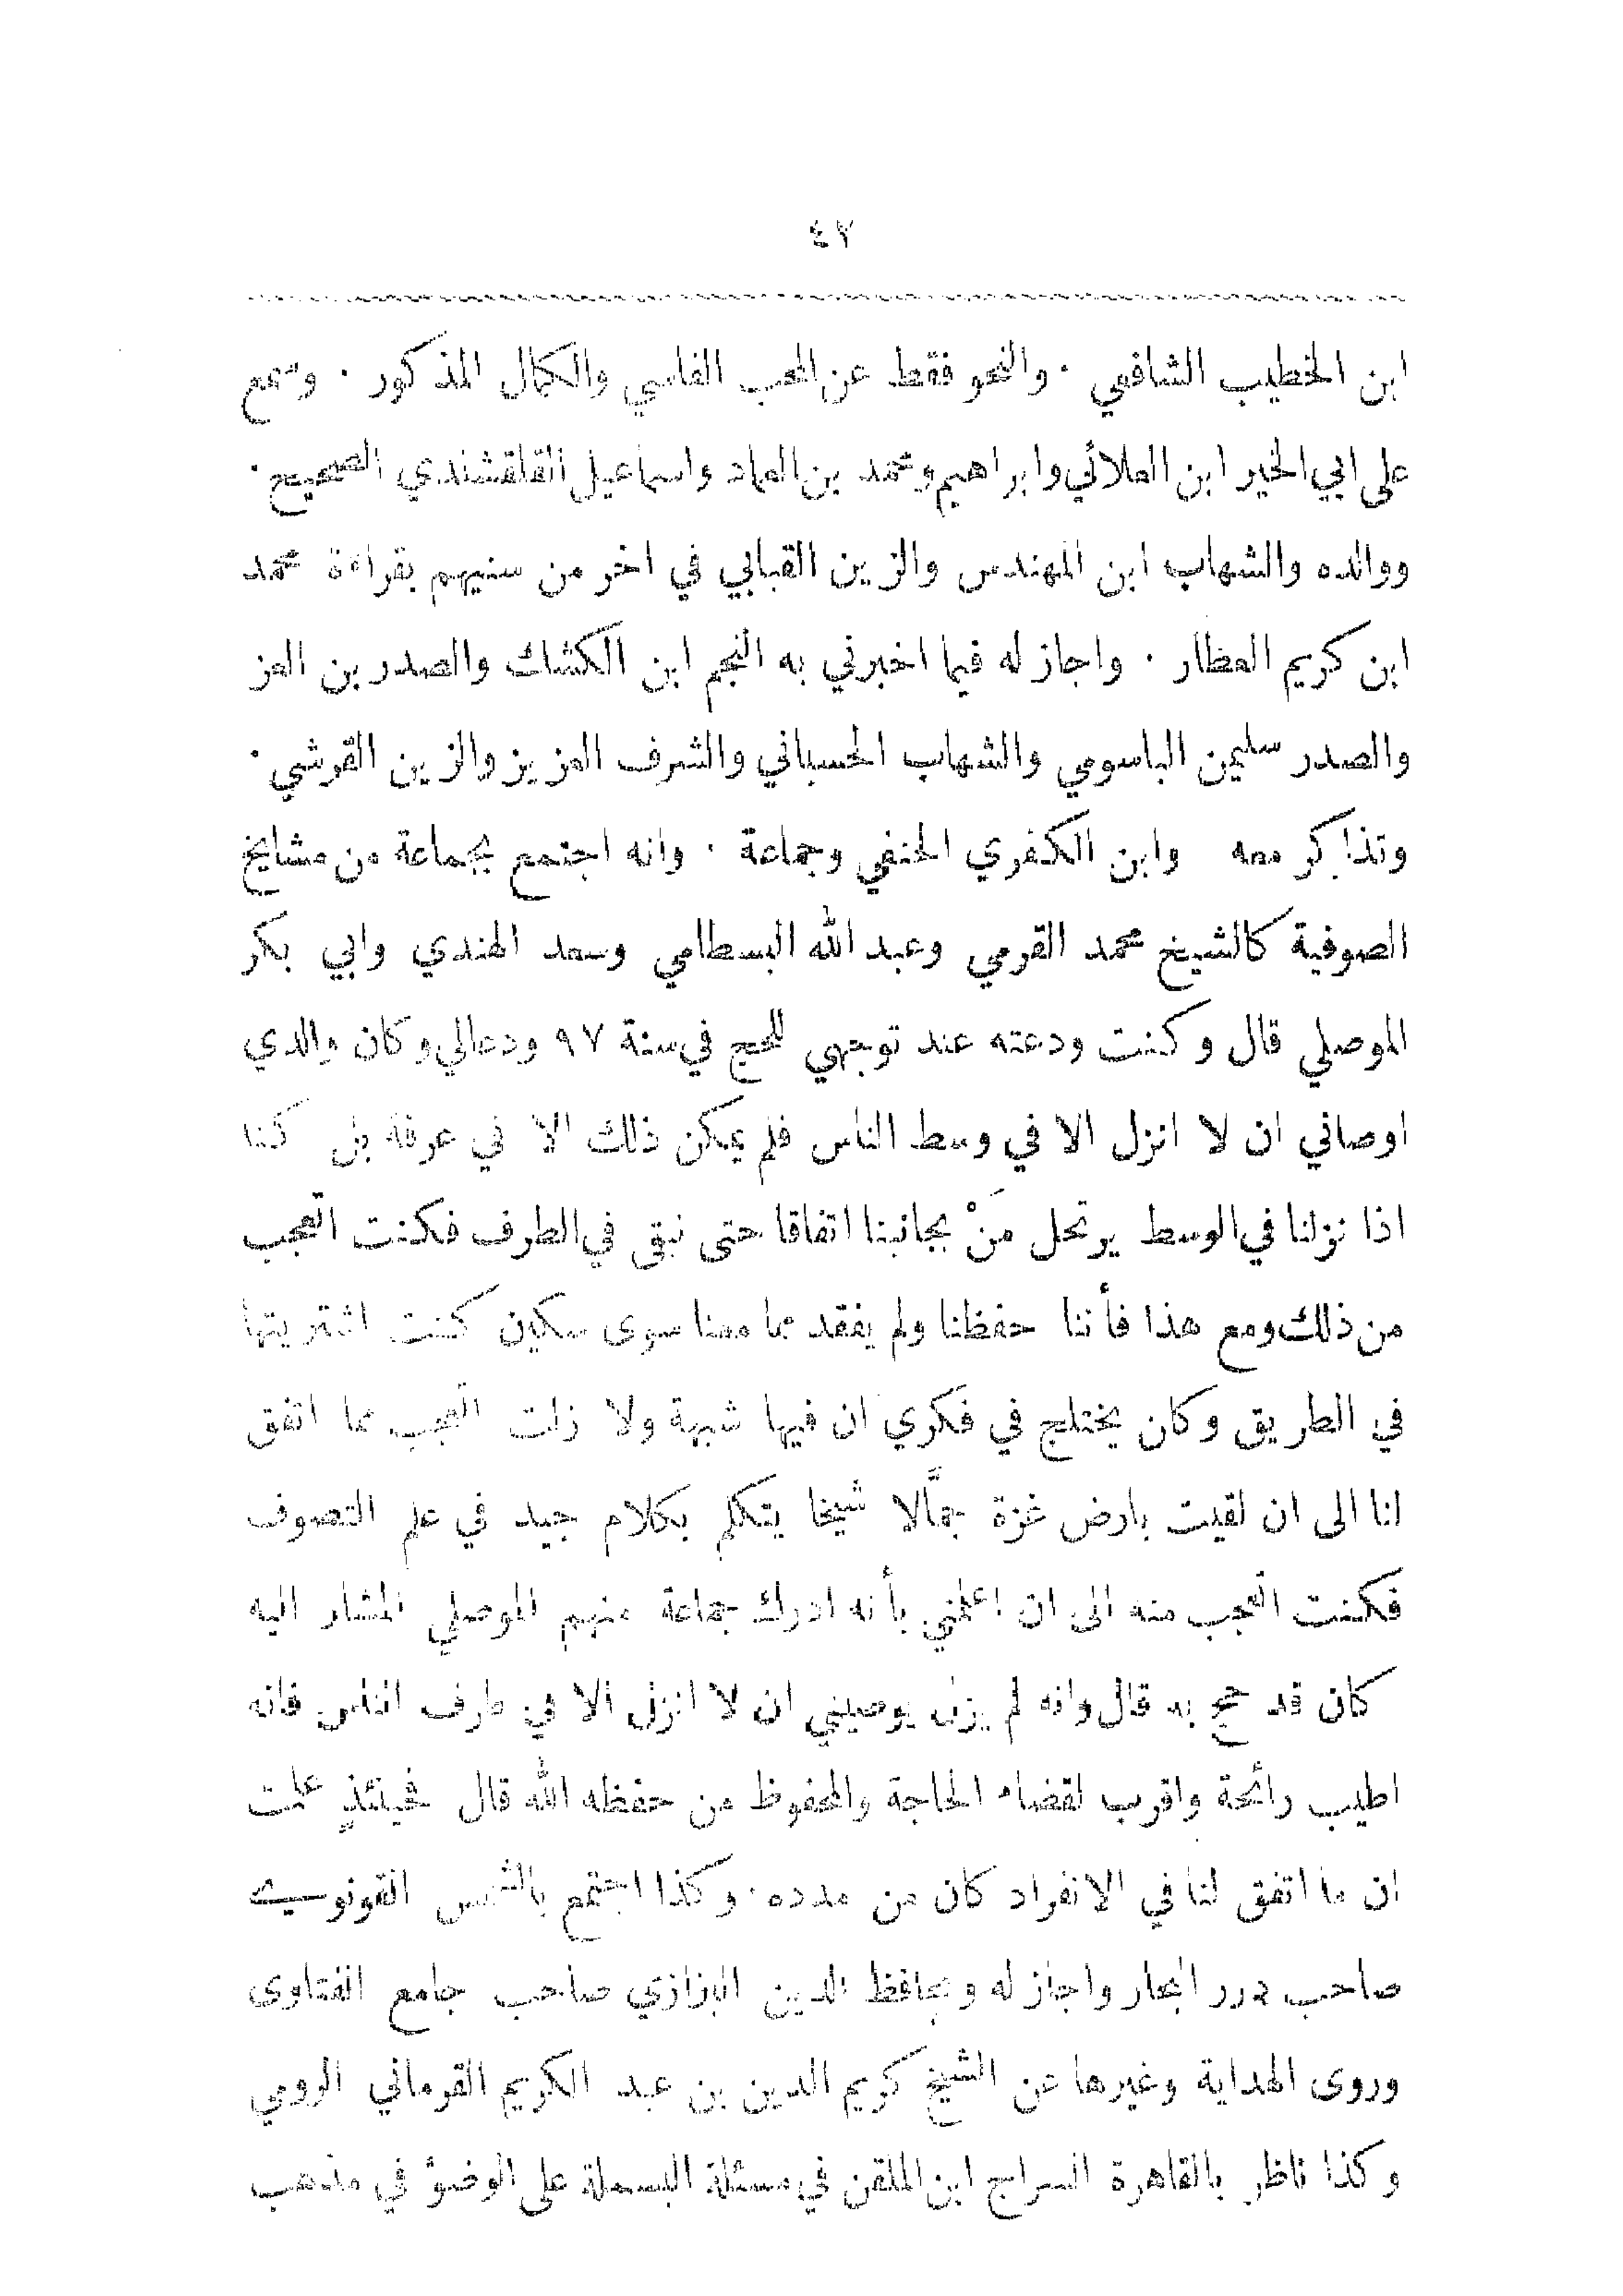 ٤٧
ابن الخطيب الشافعي · والنحو فقط عن المحب الفاسي والكمال المذكور · وسمع
على ابي الخير ابن العلائي وابراهيم ومحمد بن العماد واسماعيل القلقشندي الصحيح ·
ووالده والشهاب ابن المهندس والزين القبابي في اخر من سنيهم بقراءة محمد
ابن كريم العطار · واجاز له فيما اخبرني به النجم ابن الكشك والصدر بن العز
والصدر سليمن الياسومي والشهاب الحسباني والشرف العزيز والزين القرشي ·
وتذاكر معه وابن الكفري الحنفي وجماعة · وانه اجتمع بجماعة من مشايخ
الصوفية كالشيخ محمد القرمي وعبد الله البسطامي وسعد الهندي وابي بكر
الموصلي قال وكنت ودعته عند توجهي للحج في سنة ٩٧ ودعا لي وكان والدي
اوصاني ان لا انزل الا في وسط الناس فلم يمكن ذلك الا في عرفة بل كنا
اذا نزلنا في الوسط يرتحل مَنْ بجانبنا اتفاقا حتى نبقى في الطرف فكنت اتعجب
من ذلك ومع هذا فأننا حفظنا ولم يفقد مما معنا سوى سكين كنت اشتريتها
في الطريق وكان يختلج في فكري ان فيها شبهة ولا زلت اتعجب مما اتفق
لنا الى ان لقيت بارض غزة جمَّالا شيخا يتكلم بكلام جيد في علم التصوف
فكنت اتعجب منه الى ان اعلمني بأنه ادرك جماعة منهم الموصلي المشار اليه
كان قد حج به قال وانه لم يزل يوصيني ان لا انزل الا في طرف الناس فانه
اطيب رائحة واقرب لقضاء الحاجة والمحفوظ من حفظه الله قال فحينئذٍ علمت
ان ما اتفق لنا في الانفراد كان من مدده · وكذا اجتمع بالشمس القونوي
صاحب درر البحار واجاز له وبحافظ الدين البزازي صاحب جامع الفتاوى
وروى الهداية وغيرها عن الشيخ كريم الدين بن عبد الكريم القرماني الرومي
وكذا ناظر بالقاهرة السراج ابن الملقن في مسئلة البسملة على الوضوء في مذهب